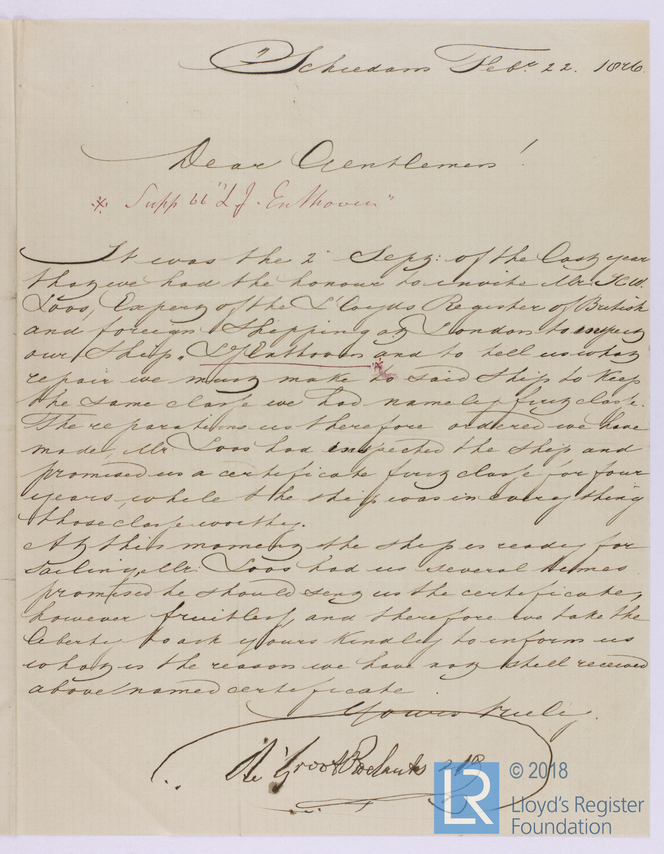 Schiedam Feb. 22. 1876.
Dear Gentlemen!
* Supp 66 "L J. Enthoven"
It was the 2 Sept: of the last year
that we had the honour to invite Mr. H.W.
Loos, Expert of the Lloyds Register of British
and foreign Shipping at London to
our Ship, L J Enthoven * and to tell us what
repair we must make to said Ship to keep
the same classe we had namely first classe.
The reparations us therefore ordered we have
made, Mr Loos had inspected the ship and
promised us a certificate first classe for four
years, while the ship was in every thing
those classe worthy.
At this moment the ship is ready for
sailing, Mr. Loos had us several times
promised he should send us the certificate,
however fruitless and therefore we take the
liberty to ask yours kindly to inform us
what is the reason we have not still received
above named certificate.
Yours truly,
De Groot Roelants
© 2018
LR Lloyd's Register
Foundation